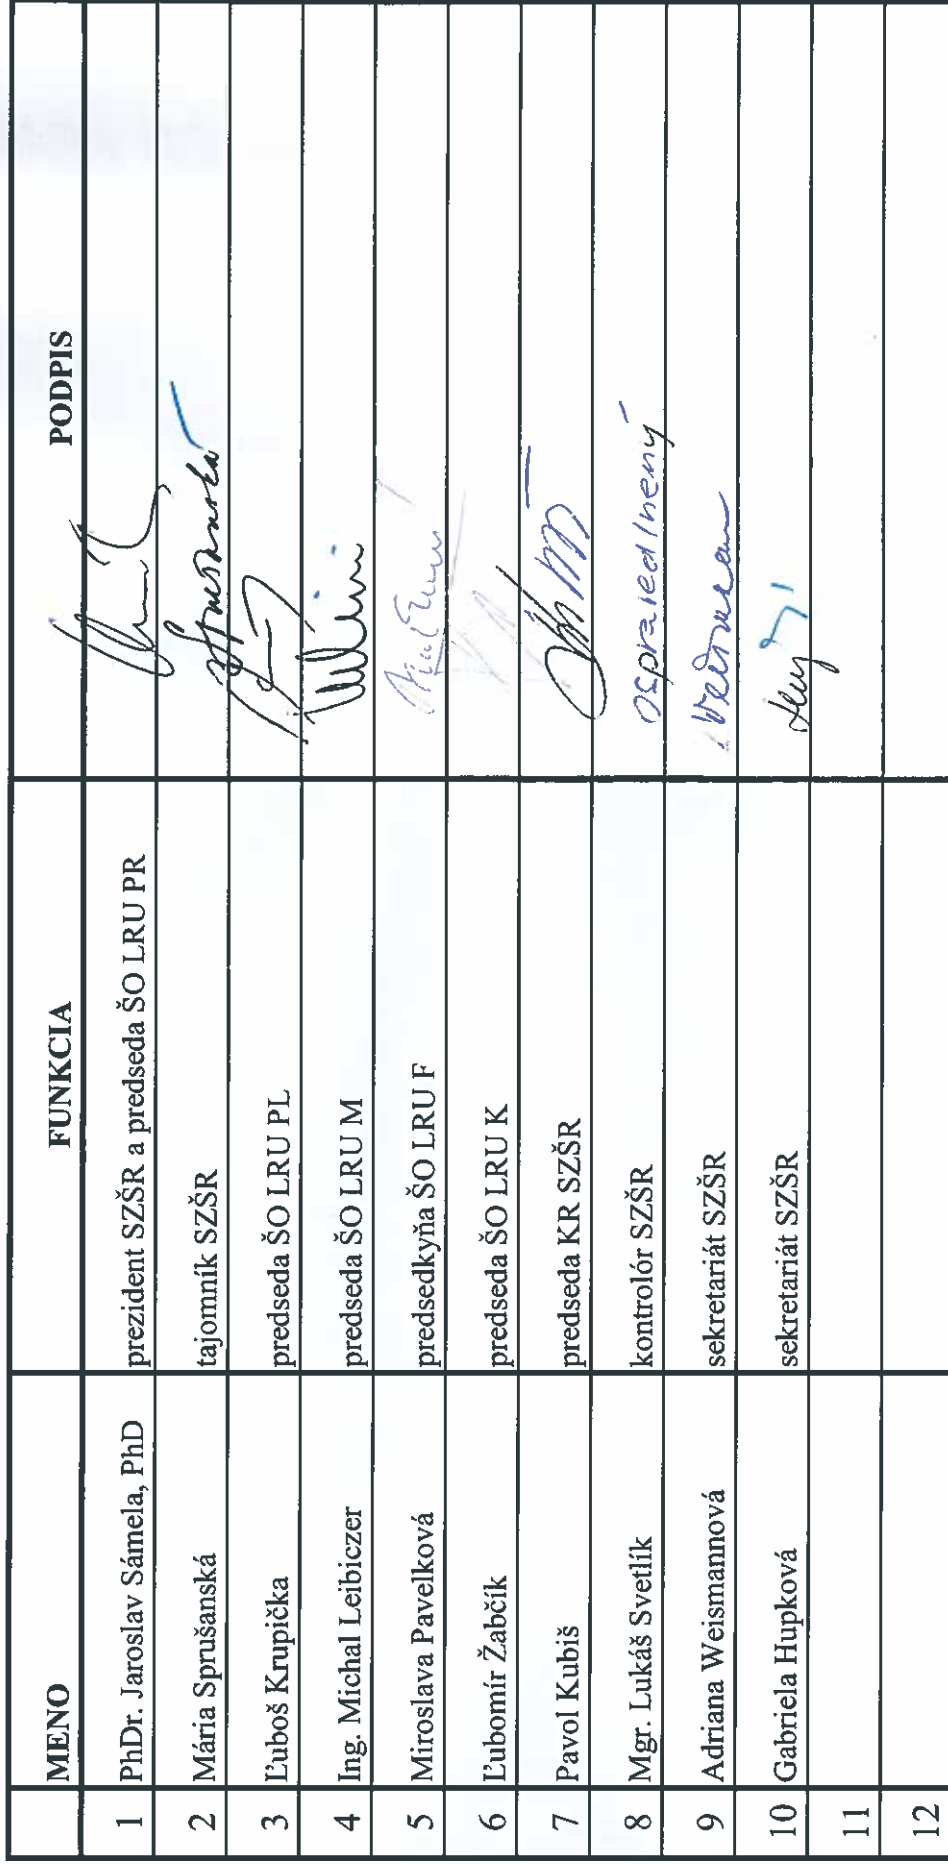 MENO FUNKCIA PODPIS
1 PhDr. Jaroslav Sámela, PhD prezident SZŠR a predseda ŠO LRU PR
2 Mária Sprušanská tajomník SZŠR Sprušanská
3 Ľuboš Krupička predseda ŠO LRU PL
4 Ing. Michal Leibiczer predseda ŠO LRU M
5 Miroslava Pavelková predsedkyňa ŠO LRU F
6 Ľubomír Žabčík predseda ŠO LRU K
7 Pavol Kubiš predseda KR SZŠR
8 Mgr. Lukáš Svetlík kontrolór SZŠR ospravedlnený
9 Adriana Weismannová sekretariát SZŠR
10 Gabriela Hupková sekretariát SZŠR
11
12